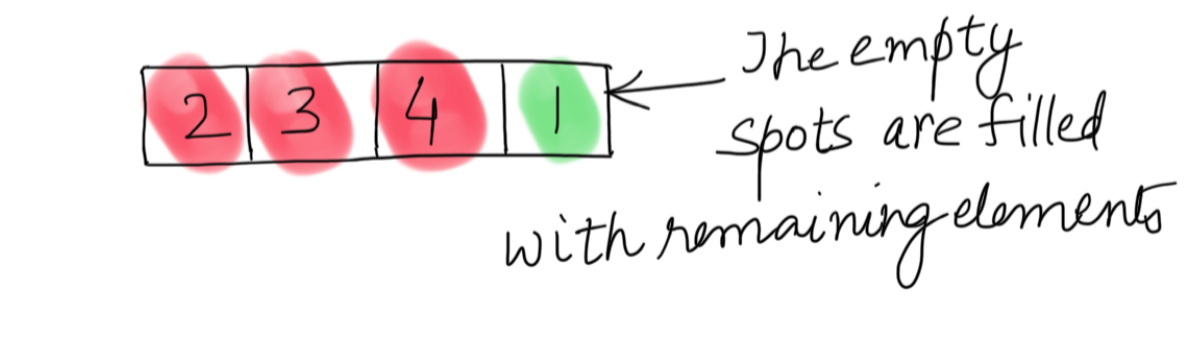 2 3 4 1
The empty
spots are filled
with remaining elements